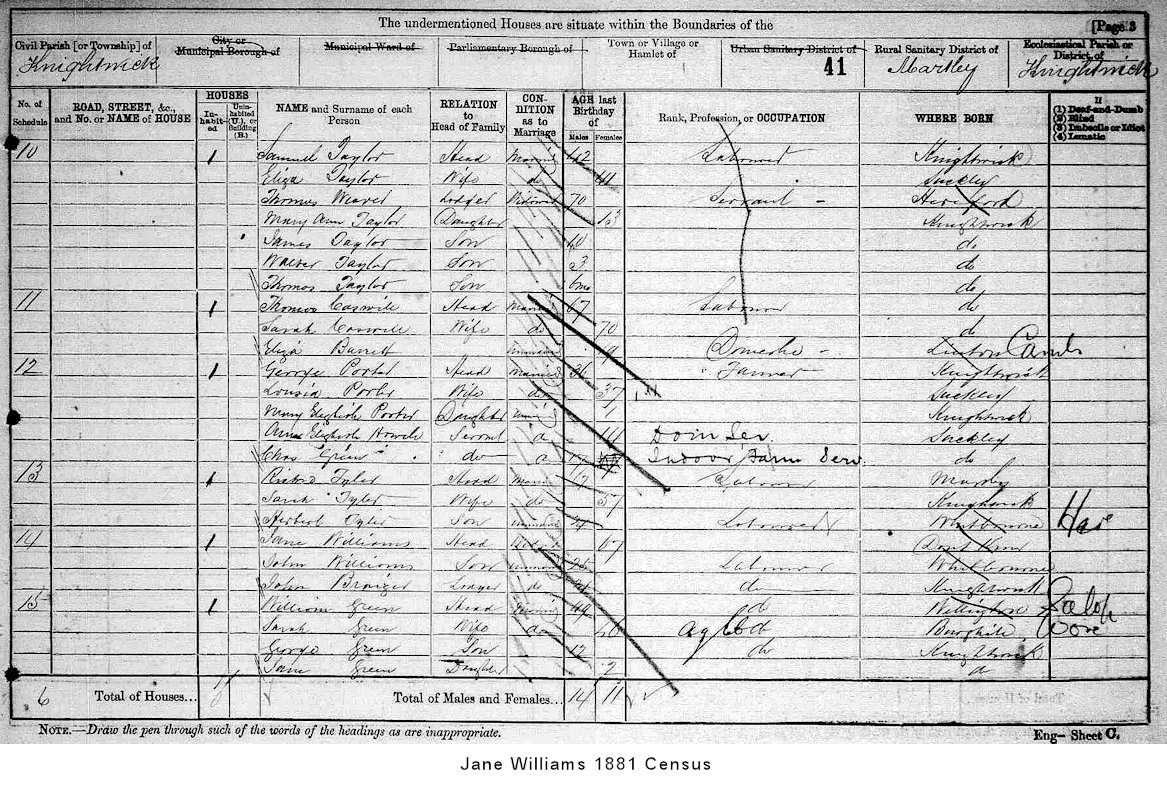 The undermentioned Houses are situate within the Boundaries of the
[Page 3
Civil Parish [or Township] of
Knightwick
City or Municipal Borough of
Municipal Ward of
Parliamentary Borough of
Town or Village or Hamlet of
Urban Sanitary District of
41
Rural Sanitary District of
Martley
Ecclesiastical Parish or District of
Knightwick
No. of Schedule
ROAD, STREET, &c., and No. or NAME of HOUSE
HOUSES
In-habit-ed
Unin-habited (U.), or Building (B.)
NAME and Surname of each Person
RELATION to Head of Family
CON-DITION as to Marriage
AGE last Birthday of
Males
Females
Rank, Profession, or OCCUPATION
WHERE BORN
If
(1) Deaf-and-Dumb
(2) Blind
(3) Imbecile or Idiot
(4) Lunatic
10 1 Samuel Taylor Head Married 42 Labourer Knightwick
Eliza Taylor Wife do 41 Suckley
Thomas Weaver Lodger Widower 70 Servant Hereford
Mary Ann Taylor Daughter 13 Knightwick
James Taylor Son 10 do
Walter Taylor Son 3 do
Thomas Taylor Son 6mo do
11 1 Thomas Head Married 67 Labourer do
Sarah Wife do 70 do
Eliza Barrett Domestic
12 1 George Porter Head Married Farmer Knightwick
Louisa Porter Wife do 37 Suckley
Porter Daughter 1 Knightwick
Servant 14 Dom Ser. Suckley
Chas Green do Indoor Farm Serv. do
13 1 Head Labourer
Sarah Wife do 57 Knightwick
Son Labourer Whitbourne
14 1 Jane Williams Head 67
John Williams Son Labourer Whitbourne
John Lodger do do Knightwick
15 1 William Green Head 49 do Wellington Salop
Sarah Green Wife do
George Green Son 12 do Knightwick
Jane Green Daughter 2 do
6 Total of Houses...
Total of Males and Females... 14 11
NOTE.—Draw the pen through such of the words of the headings as are inappropriate.
Eng— Sheet C.
Jane Williams 1881 Census